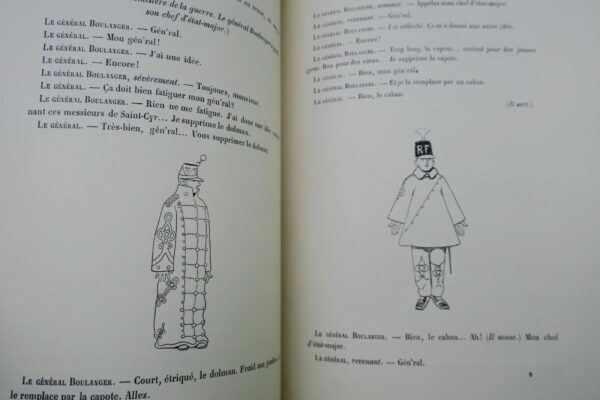 nistère de la guerre. Le général Boulanger
son chef d'état-major.)
LE GÉNÉRAL BOULANGER. — Gén'ral.
LE GÉNÉRAL. — Mon gén'ral!
LE GÉNÉRAL BOULANGER. — J'ai une idée.
LE GÉNÉRAL. — Encore!
LE GÉNÉRAL BOULANGER, sévèrement. — Toujours, monsieur.
LE GÉNÉRAL. — Ça doit bien fatiguer mon gén'ral?
LE GÉNÉRAL BOULANGER. — Rien ne me fatigue. J'ai donc une idée
nant ces messieurs de Saint-Cyr... Je supprime le dolman.
LE GÉNÉRAL. — Très-bien, gén'ral... Vous supprimez le dolman.
LE GÉNÉRAL BOULANGER. — Court, étriqué, le dolman. Froid aux
le remplace par la capote. Allez.
LE GÉNÉRAL BOULANGER, — Appelez mon chef d'état-major.
LE GÉNÉRAL, revenant. — Gén'ral.
LE GÉNÉRAL BOULANGER. — J'ai réfléchi. Ça m'a donné une idée.
LE GÉNÉRAL. — Encore!
LE GÉNÉRAL BOULANGER. — Trop long, la capote... surtout pour des jeunes
gens. Bon pour des vieux... Je supprime la capote.
LE GÉNÉRAL. — Bien, mon gén'ral.
LE GÉNÉRAL BOULANGER. — Et je la remplace par un caban.
LE GÉNÉRAL. — Bien, le caban.
(Il sort.)
RF
LE GÉNÉRAL BOULANGER. — Bien, le caban... Ah! (Il sonne.) Mon chef
d'état-major.
LE GÉNÉRAL, revenant. — Gén'ral.
8